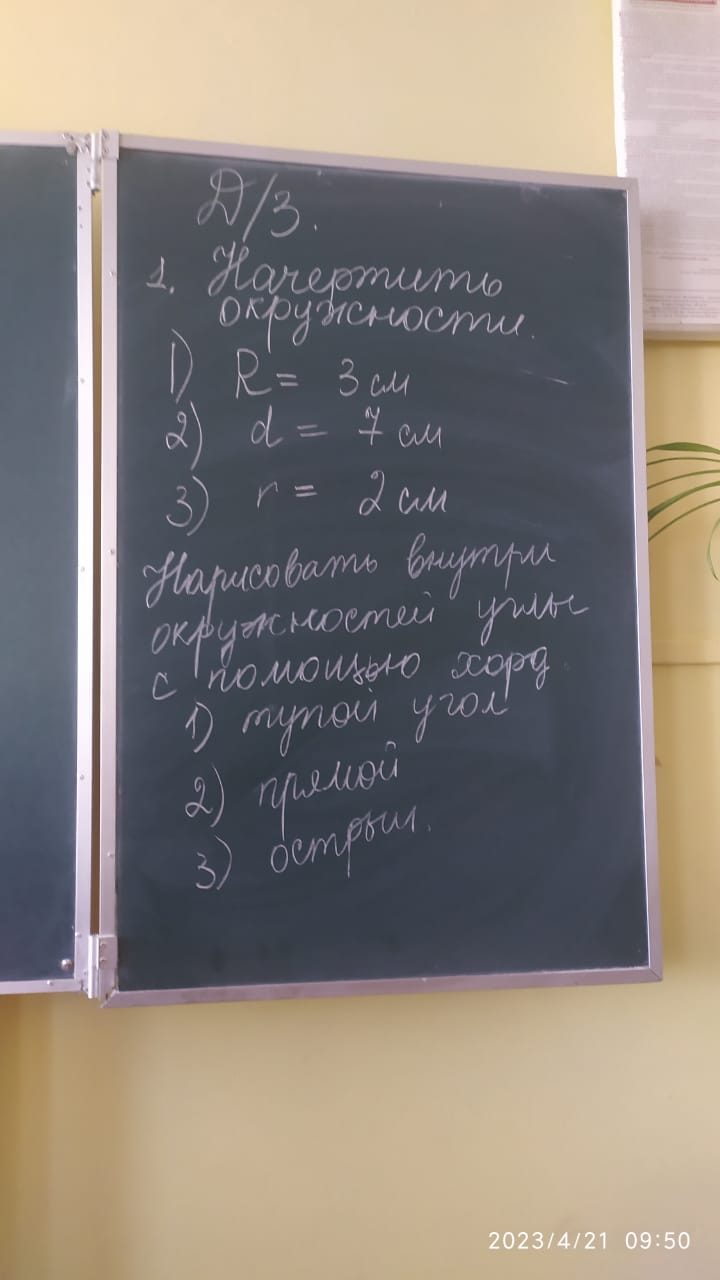 Д/З.
1. Начертить
окружности.
1) R = 3 см
2) d = 7 см
3) r = 2 см
Нарисовать внутри
окружностей углы
с помощью хорд.
1) тупой угол
2) прямой
3) острый.
2023/4/21 09:50